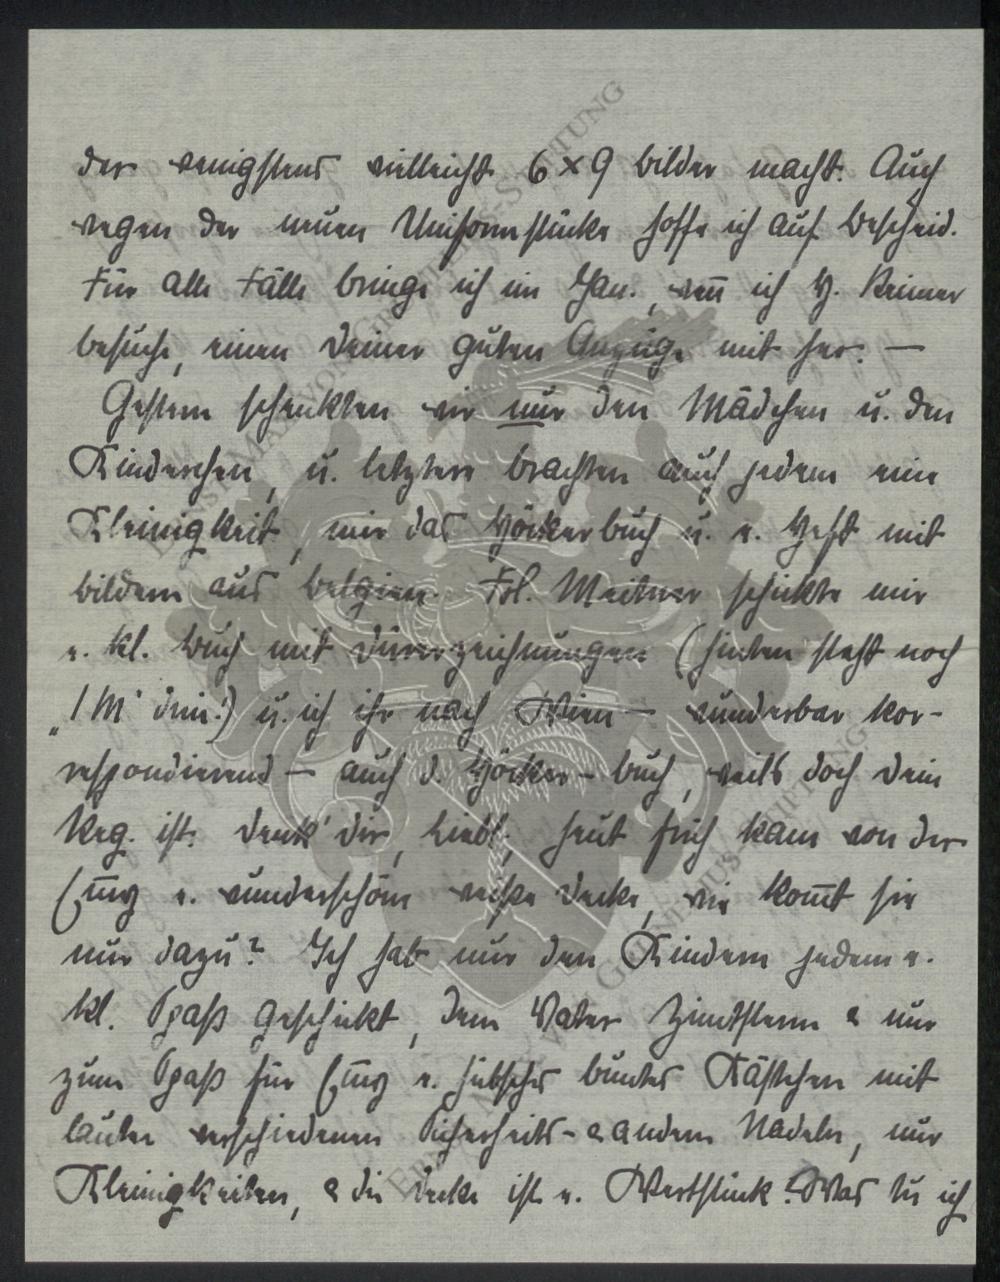 der wenigstens vielleicht 6 x 9 bilder macht. Auch
wegen der neuen Uniformstücke hoffe ich auf bescheid.
Für alle Fälle bringe ich im Jan., weñ ich H. Reimer
besuche, einen deiner guten Anzüge mit her. —
Gestern schenkten wir nur den Mädchen u. den
Kinderchen, u. letztere brachten auch jedem eine
Kleinigkeit, mir das Höckerbuch u. e. Heft mit
bildern aus belgien. Frl. Meitner schickte mir
e. kl. buch mit dürerzeichnungen (hinten steht noch
„1 M" drin!) u. ich ihr nach Wien — wunderbar kor-
respondierend — auch d. Höcker-buch, weils doch dein
Reg. ist. denk' dir, Liebl., heut früh kam von der
e. wunderschöne weiße decke, wie kom̄t sie
nur dazu? Ich hab nur den Kindern jedem e.
kl. Spaß geschickt, dem Vater Zimtsterne & nur
zum Spaß für e. hübsches buntes Kästchen mit
lauter verschiedenen Sicherheits- & andern Nadeln, nur
Kleinigkeiten, & die decke ist e. Wertstück! Was tu ich
ERNST-MAX-VON-GRUNELIUS-STIFTUNG
ERNST-MAX-VON-GRUNELIUS-STIFTUNG